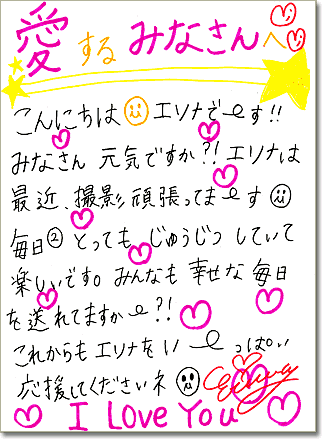 愛するみなさんへ
こんにちは エリナでーす!!
みなさん 元気ですか?! エリナは
最近、撮影頑張ってまーす
毎日② とっても じゅうじつ していて
楽しいです。みんなも 幸せな 毎日
を 送れてますかー?!
これからも エリナを いーっぱい
応援してくださいネ
I Love You